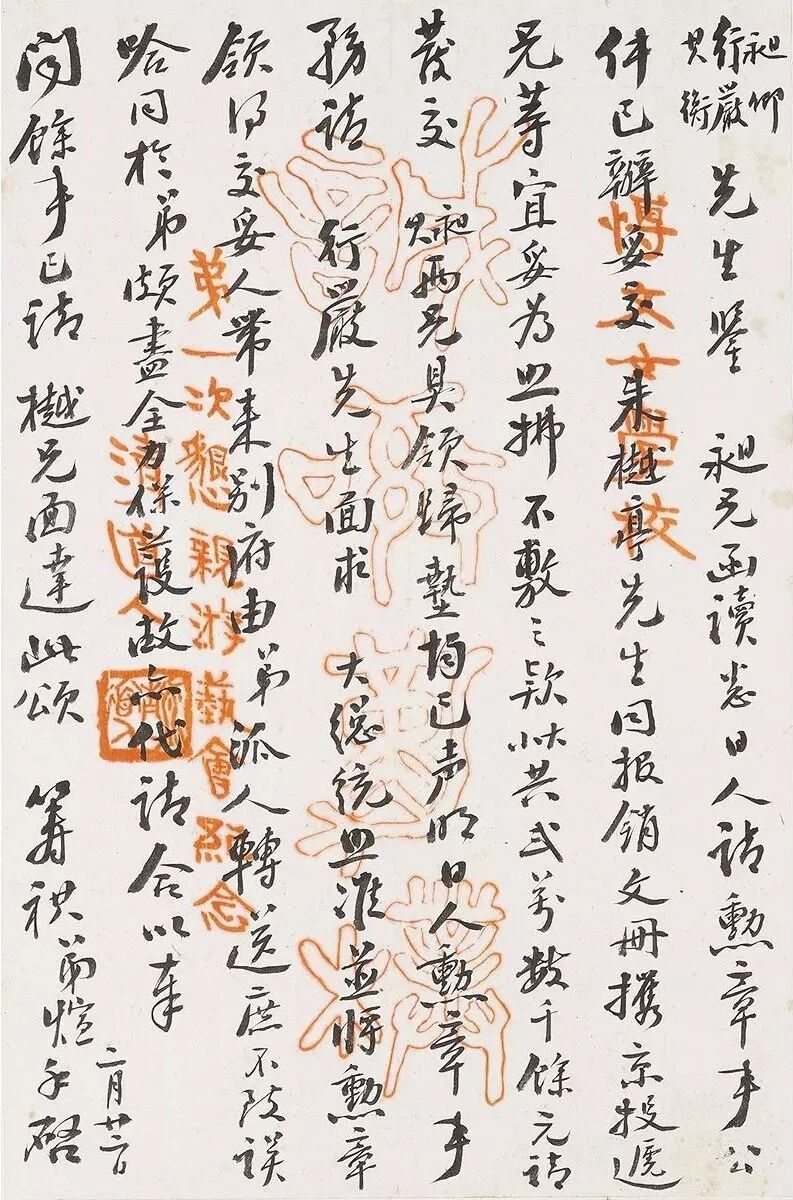 昶仰
行嚴
其衡 先生鑒 昶兄函讀悉日人請勳章事公
件已辦妥交朱樾亭先生同报銷文冊攜京投遞
兄等宜妥为照拂不敷之欵共弍萬数千餘元請
發交 昶其兩兄具領歸墊均已声明日人勳章事
務請 行嚴先生面求 大總統照准並將勳章
領得交妥人帶来别府由弟派人轉送庶不致误
哈同於弟頗盡全力保護故亦代請合以奉
聞餘事已請樾兄面達此頌
籌祺 弟煊手啓
二月廿一日
博文女學校
第一次懇親游藝會紀念
清道人